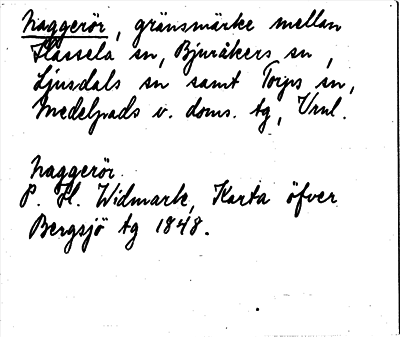 Naggerör, gränsmärke mellan
Hassela sn, Bjuråkers sn,
Ljusdals sn samt Torps sn,
Medelpads v. doms. tg, Vrnl.
Naggerör
P. H. Widmark, Karta öfver
Bergsjö tg 1848.